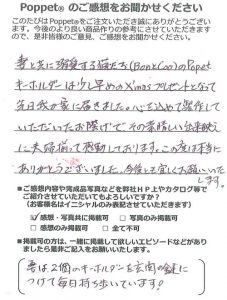 Poppet® のご感想をお聞かせください
このたびはPoppet®をご注文いただき誠にありがとうございま
す。今後のより良い商品作りの参考にさせていただきますの
で、是非皆様のご意見、ご感想をお聞かせください。
妻と共に溺愛する猫たち(BonとCoo)のPoppet
キーホルダーは少し早めのXmasプレゼントとなって
先日我が家に届きました。心を込めて製作して
いただいたお陰で、その素晴しい出来映え
に夫婦揃って感動しております。この度は本当に
ありがとうございました。今後とも宜しくお願いいた
します。
■ご感想内容や完成品写真などを弊社HP上やカタログ等で
ご紹介させていただいてもよろしいですか?
(お客様名はイニシャルのみ表記させていただきます)
☑感想・写真共に掲載可 □写真のみ掲載可
□感想のみ掲載可 □全て不可
■掲載可の方は、一緒に掲載して欲しいエピソードなどがあり
ましたら是非ご記入をお願いいたします。
妻は2個のキーホルダーを玄関の鍵に
つけて毎日持ち歩いています!